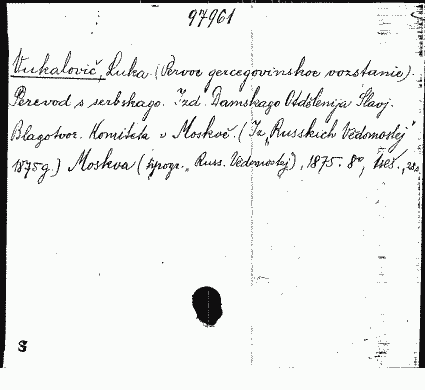 97961
Vukalovič, Luka. (Pervoe gercegovinskoe vozstanie).
Perevod s serbskago. Izd. Damskago Otdělenija Slavj.
Blagotvor. Komiteta v Moskvě. (Iz „Russkich Vědomostej"
1875 g.) Moskva (tipogr. „Russ. Vědomostej), 1875. 8°,
S